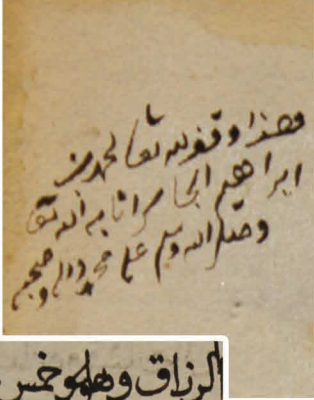 وهذا وقف لله تعا لمحمد بن
ابراهيم الجاسر اثابه الله تعا
وصلى الله وسلم على محمد واله وصحبه
الرزاق خمس